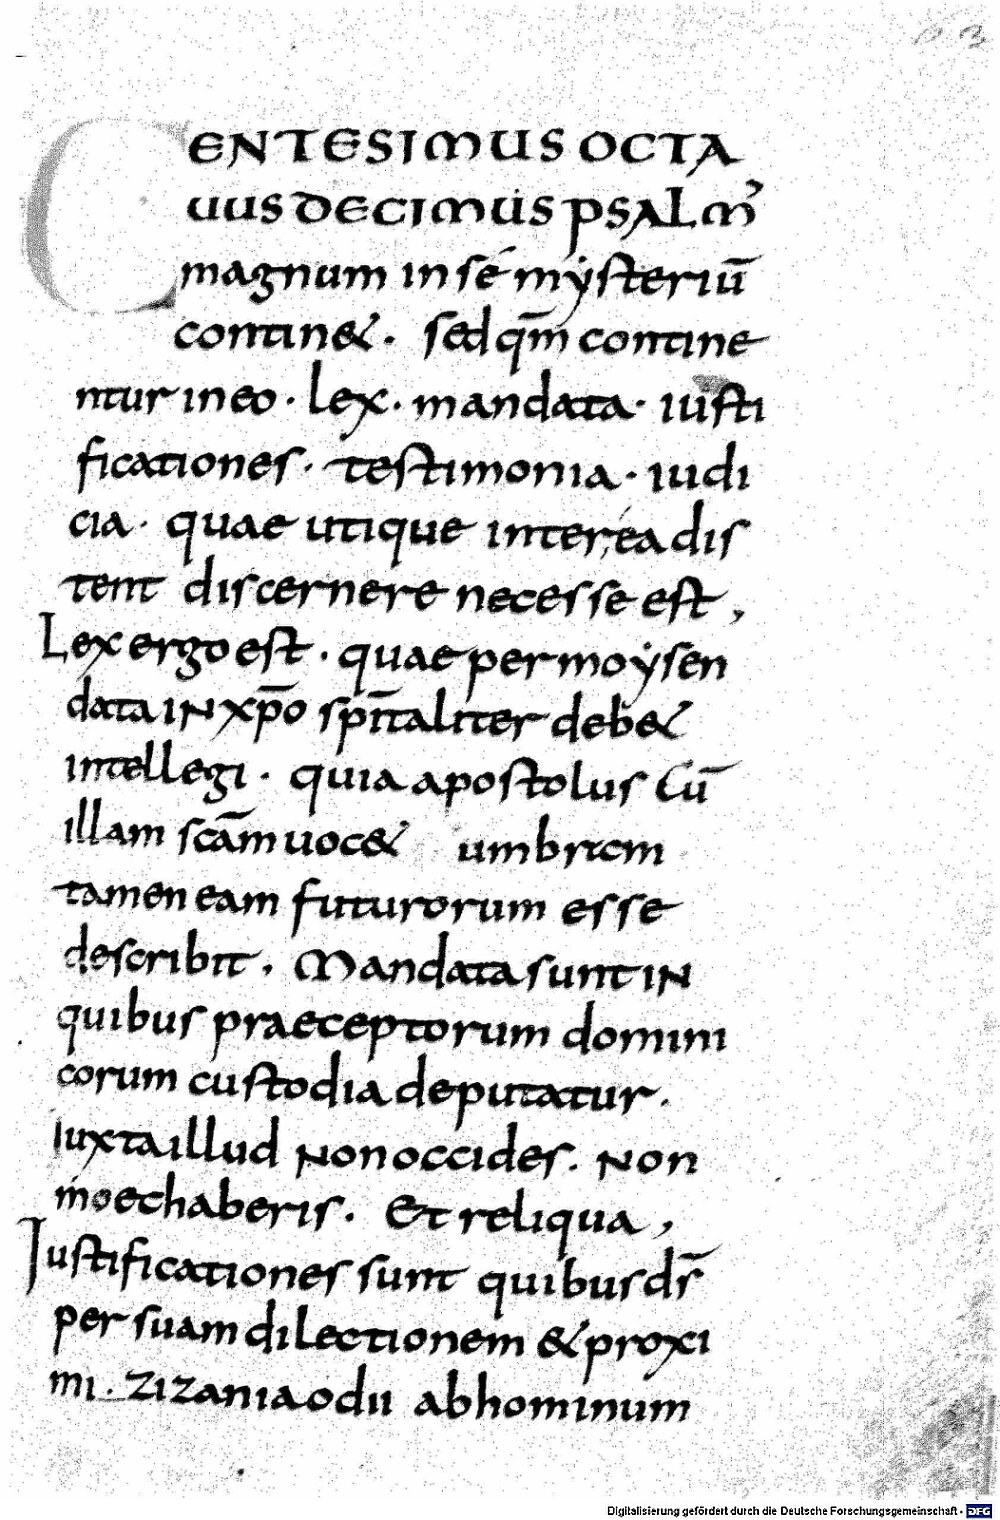 63
CENTESIMUS OCTA
UUS DECIMUS PSALM'
magnum in sé mẏsteriū
contin&. sed qm̄ contine
ntur in eo. lex. mandata. iusti
ficationes. testimonia. iudi
cia. quae utique inter, éa dis
tent discernere necesse est,
Lex ergo est. quae per moẏsen
data IN xp̄o spīritaliter deb&
intellegi. quia apostolus Cū
illam scām uoc& umbrtem
tamen eam futurorum esse
describit. Mandata sunt IN
quibus praeceptorum domini
corum custodia deputatur.
Iuxta illud Non occides. Non
moechaberis. Et reliqua,
Iustificationes sunt quibus ds̄
per suam dilectionem & proxi
mi. zizania odii ab hominum
Digitalisierung gefördert durch die Deutsche Forschungsgemeinschaft - DFG